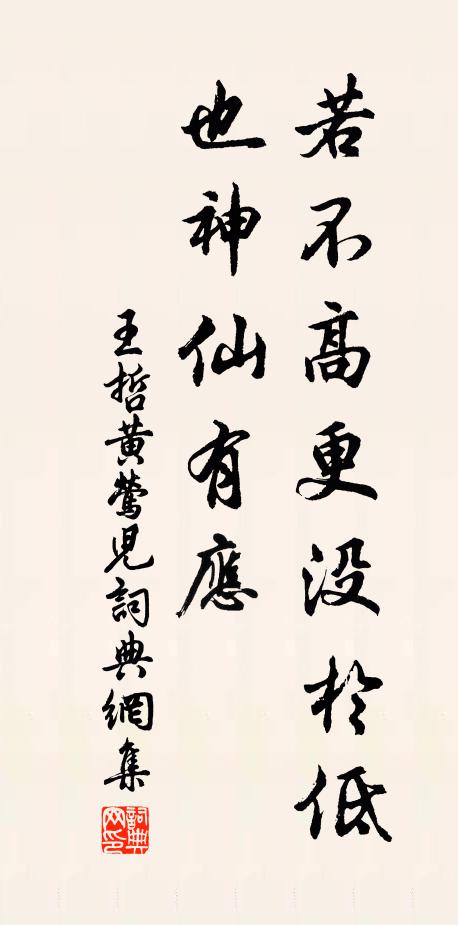 若不高更没於低
也神仙有應
王哲黄鶯児詞典網集
詞典网印